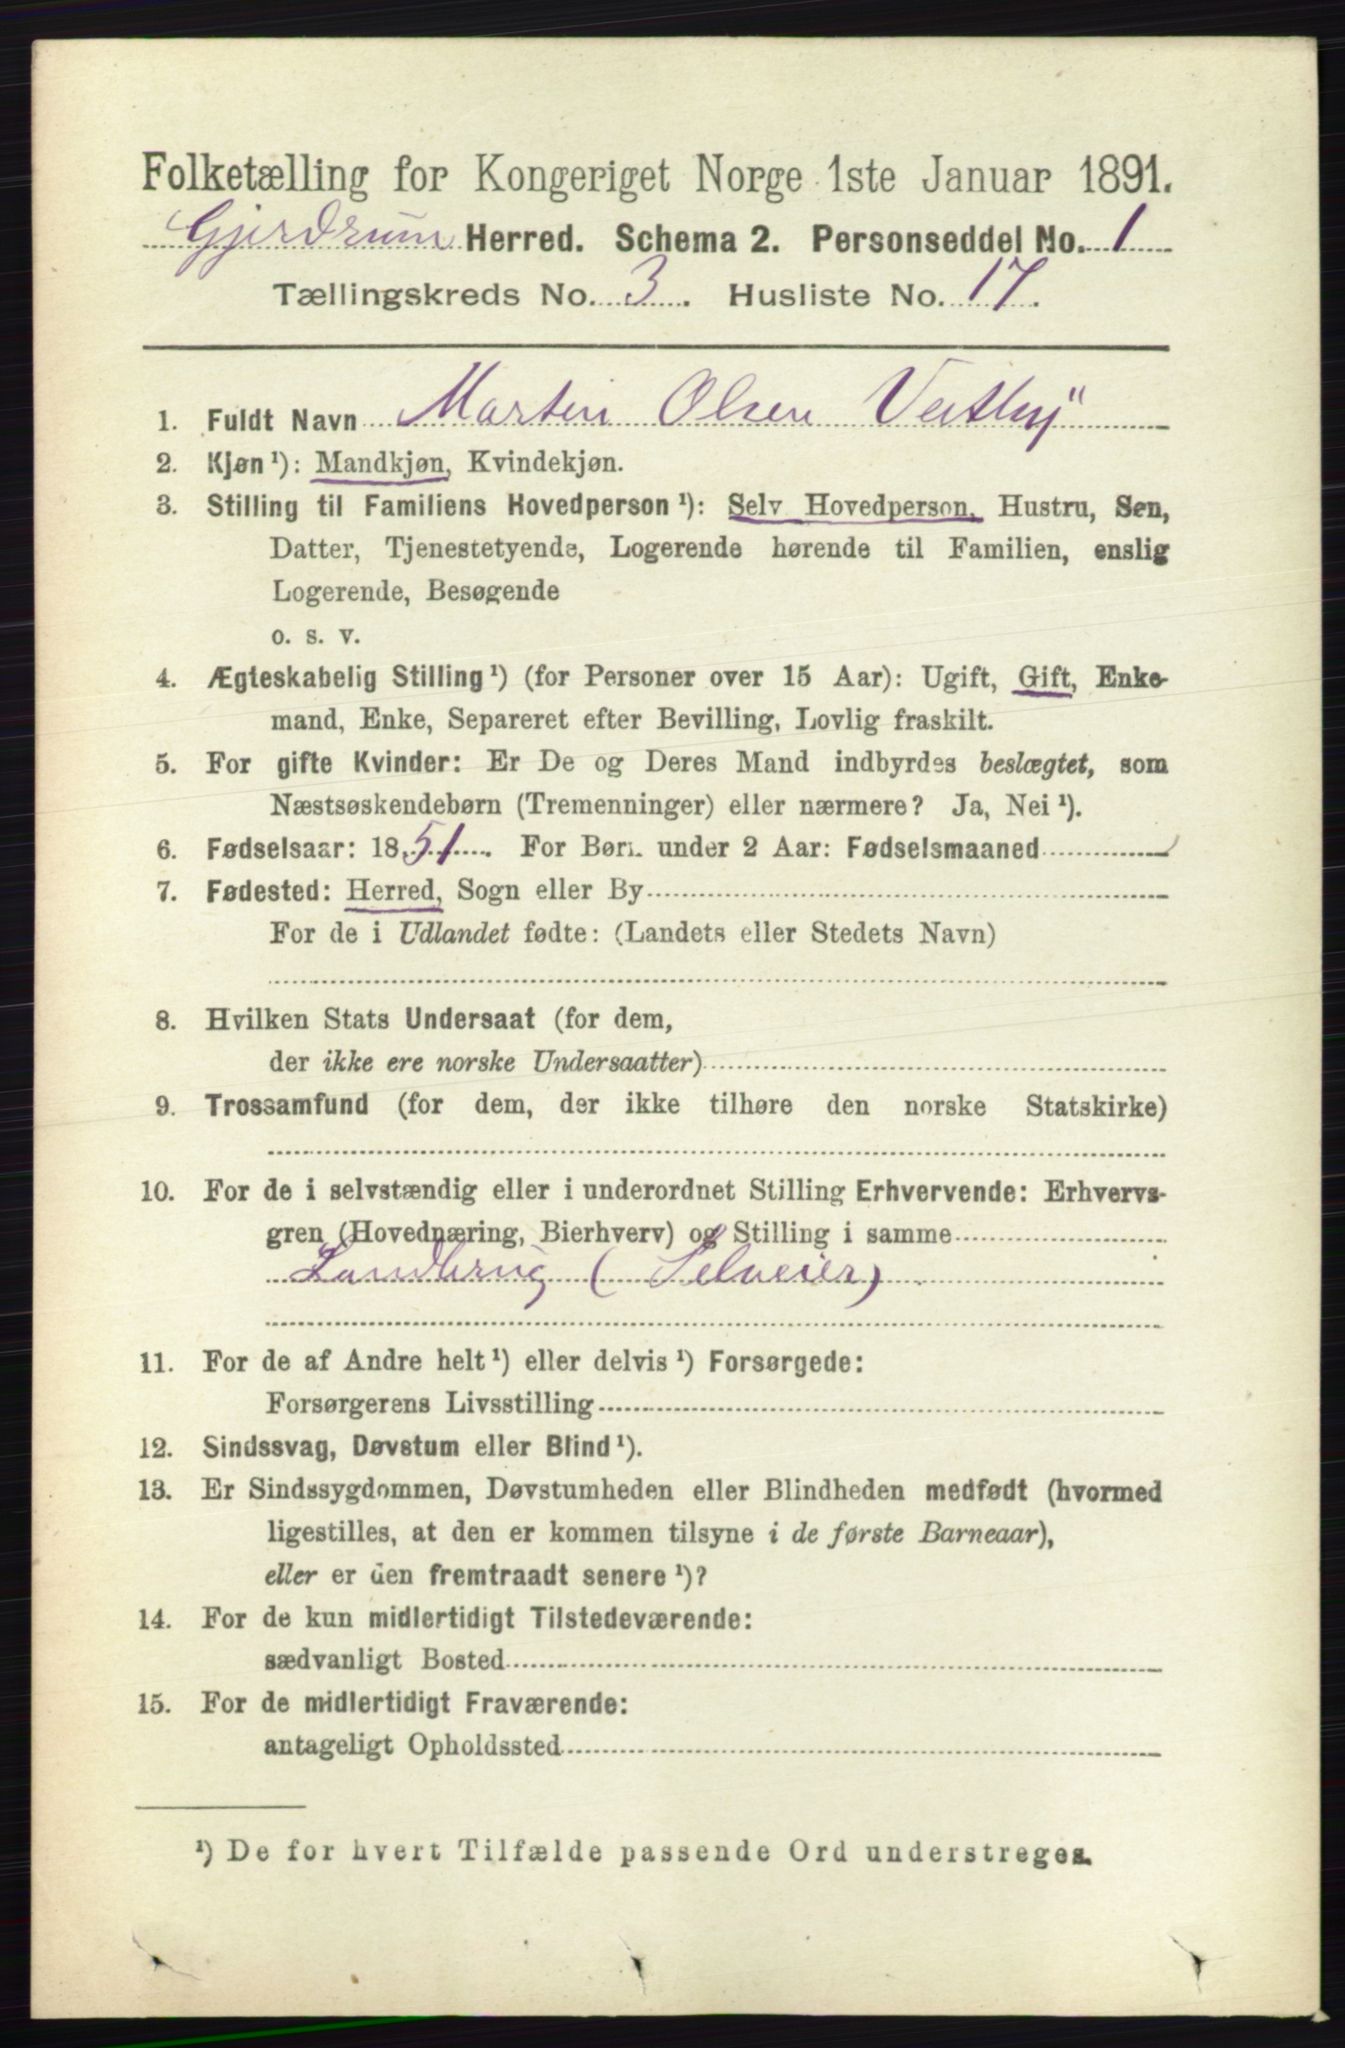 Folketælling for Kongeriget Norge 1ste Januar 1891.
Gjerdrum Herred. Schema 2. Personseddel No. 1
Tællingskreds No. 3. Husliste No. 17.
1. Fuldt Navn Martin Olsen Vestby
2. Kjøn ¹): Mandkjøn, Kvindekjøn.
3. Stilling til Familiens Hovedperson ¹): Selv Hovedperson, Hustru, Søn,
Datter, Tjenestetyende, Logerende hørende til Familien, enslig
Logerende, Besøgende
o. s. v.
4. Ægteskabelig Stilling ¹) (for Personer over 15 Aar): Ugift, Gift, Enke-
mand, Enke, Separeret efter Bevilling, Lovlig fraskilt.
5. For gifte Kvinder: Er De og Deres Mand indbyrdes beslægtet, som
Næstsøskendebørn (Tremenninger) eller nærmere? Ja, Nei ¹).
6. Fødselsaar: 1851. For Børn under 2 Aar: Fødselsmaaned
7. Fødested: Herred, Sogn eller By
For de i Udlandet fødte: (Landets eller Stedets Navn)
8. Hvilken Stats Undersaat (for dem,
der ikke ere norske Undersaatter)
9. Trossamfund (for dem, der ikke tilhøre den norske Statskirke)
10. For de i selvstændig eller i underordnet Stilling Erhvervende: Erhvervs-
gren (Hovednæring, Bierhverv) og Stilling i samme
Landbrug (Selveier)
11. For de af Andre helt ¹) eller delvis ¹) Forsørgede:
Forsørgerens Livsstilling
12. Sindssvag, Døvstum eller Blind ¹).
13. Er Sindssygdommen, Døvstumheden eller Blindheden medfødt (hvormed
ligestilles, at den er kommen tilsyne i de første Barneaar),
eller er den fremtraadt senere ¹)?
14. For de kun midlertidigt Tilstedeværende:
sædvanligt Bosted
15. For de midlertidigt Fraværende:
antageligt Opholdssted
¹) De for hvert Tilfælde passende Ord understreges.